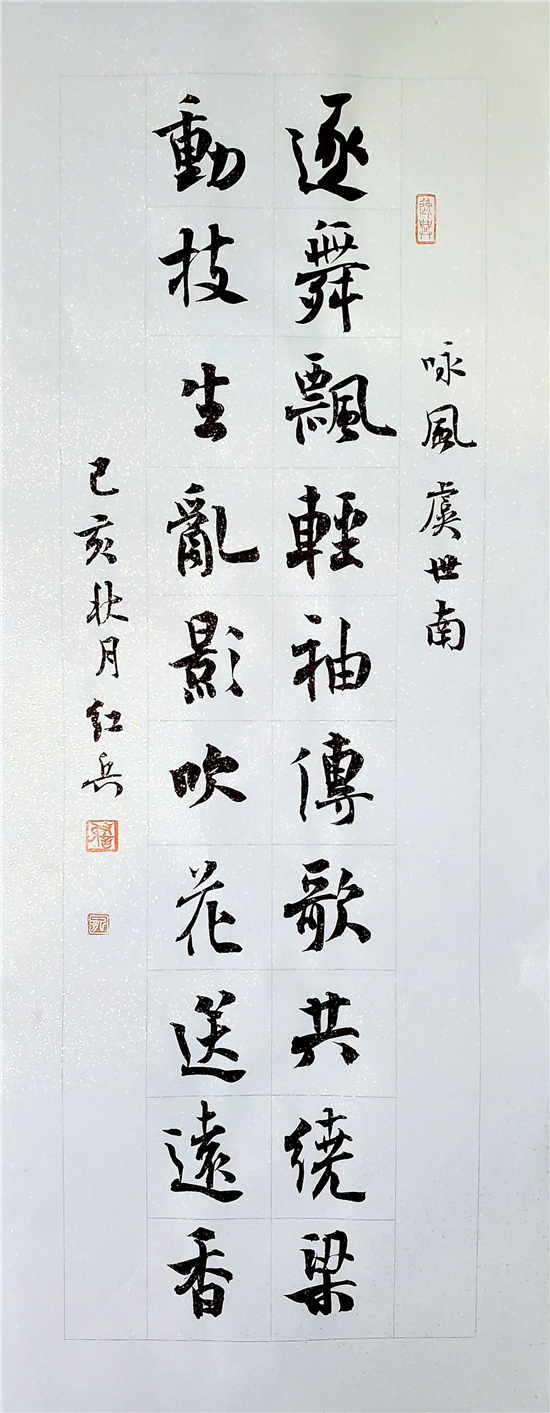 咏風虞世南
逐舞飄輕袖傳歌共繞梁
動枝生亂影吹花送遠香
己亥秋月红兵